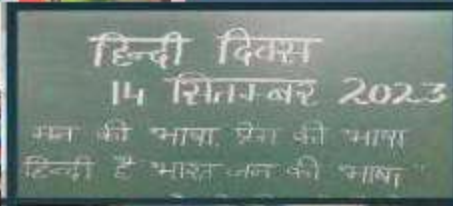 हिन्दी दिवस
14 सितम्बर 2023
मन की भाषा, प्रेम की भाषा
हिन्दी है भारत जन की भाषा"